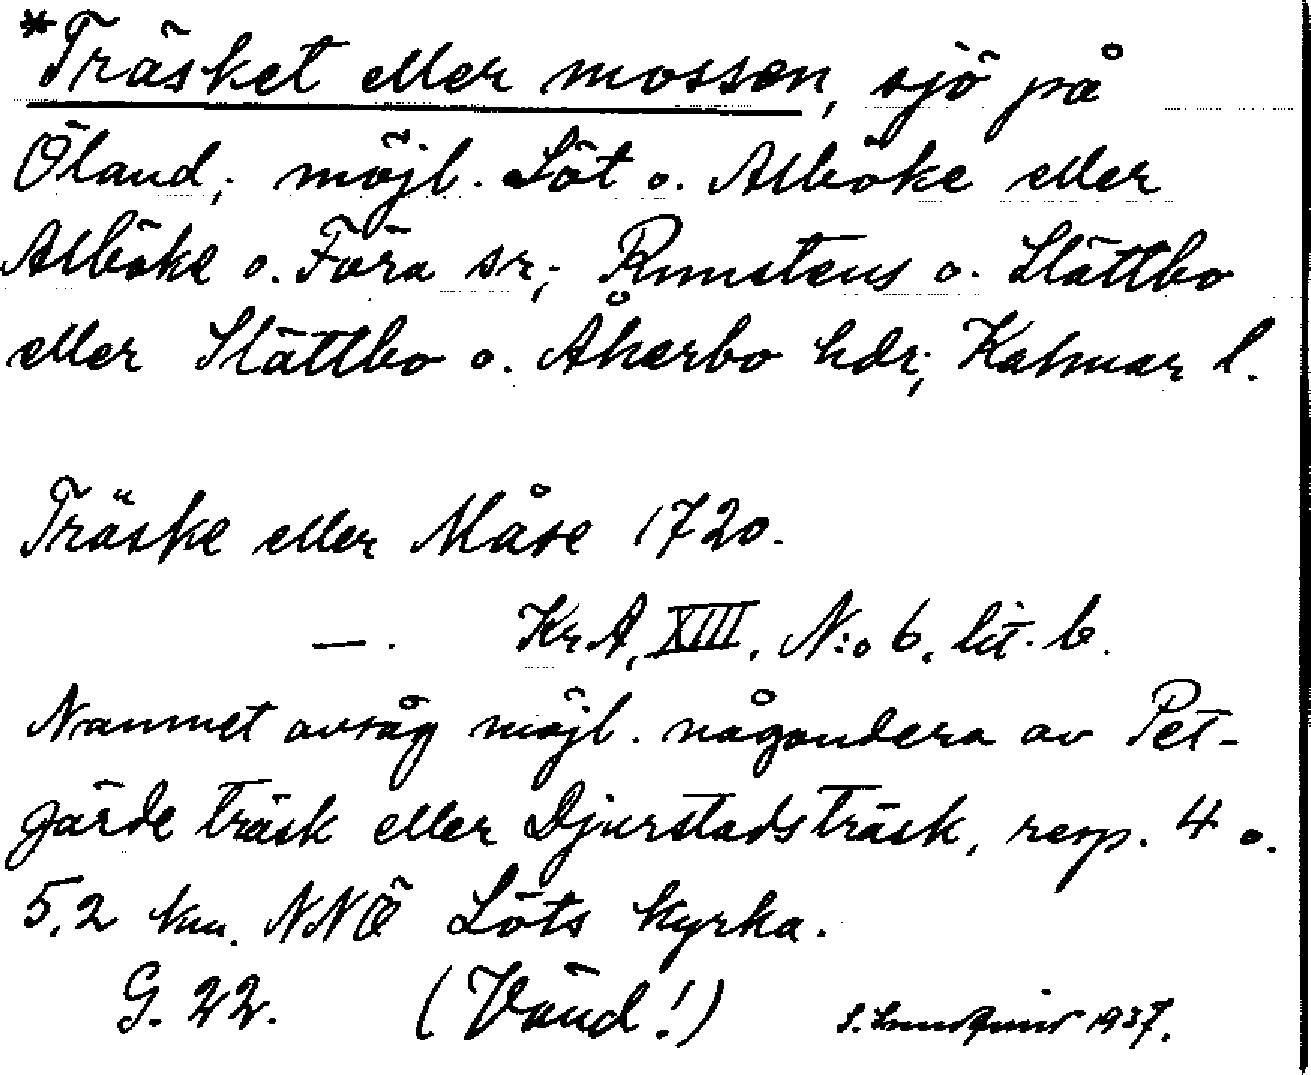 *Träsket eller mossen, sjö på
Öland; möjl. Löt o. Alböke eller
Alböke o. Föra sr; Runstens o. Slättbo
eller Slättbo o. Åkerbo hdr; Kalmar l.
Träske eller Måse 1720.
— . KrA, XIII. N:o 6. lit. b.
Namnet avsåg möjl. någondera av Pet-
gärde träsk eller Djurstads träsk, resp. 4 o.
5,2 km. NNÖ Löts kyrka.
G. 22. (Vänd!) S. 1937.